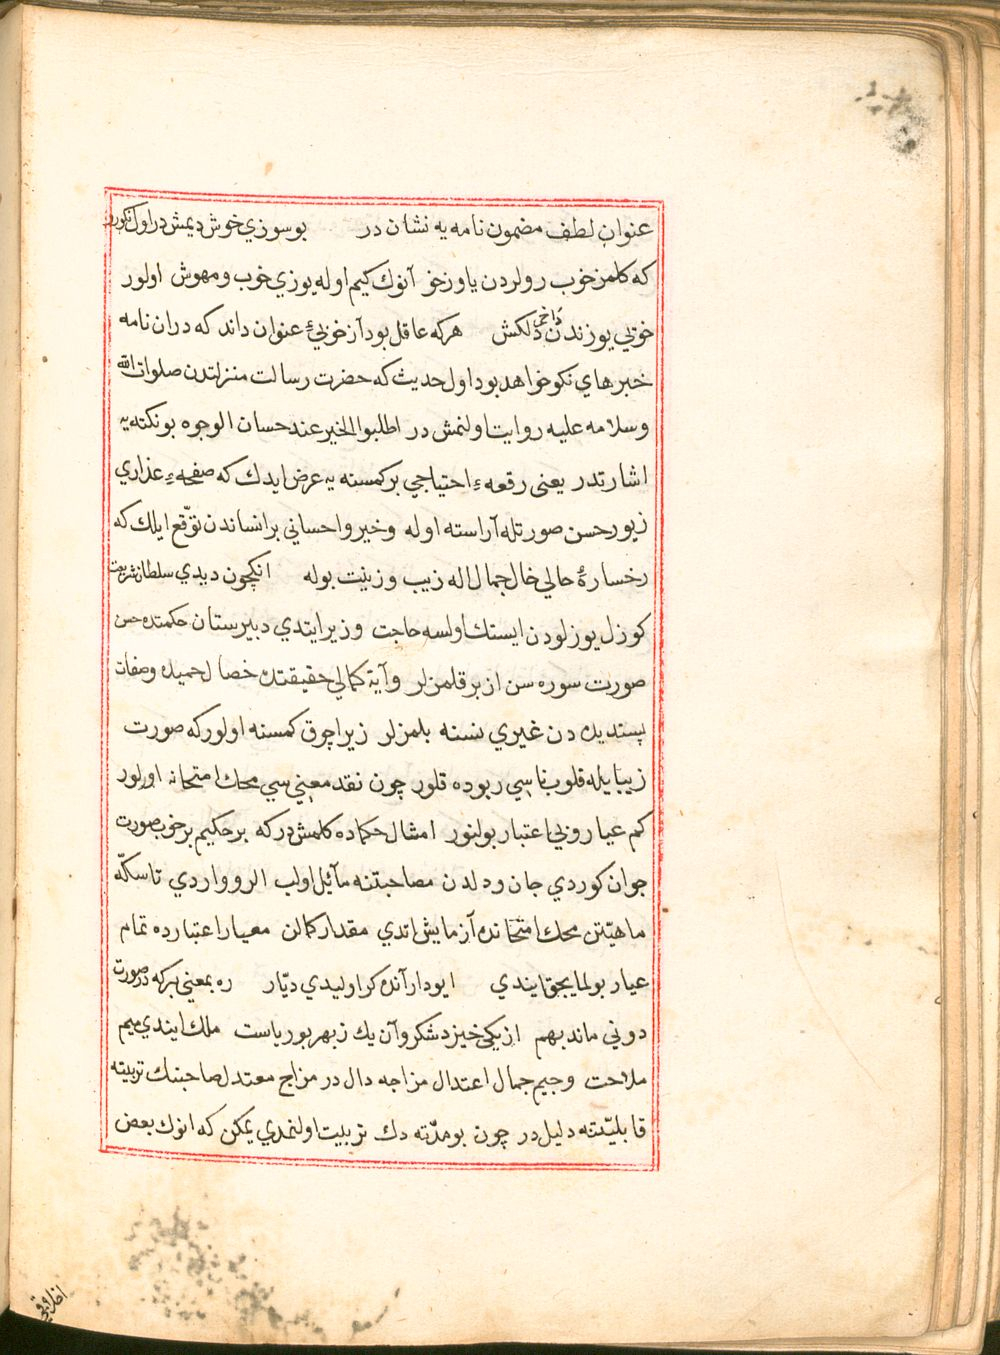 عنوان لطف مضمون نامه یه نشان در بو سوزي خوش دیمش در اول نکورو
که کلمز خوب رولردن یاوز خو آنوك کیم اوله یوزي خوب و مهوش اولور
خوئي یوزندن داخی دلکش هرکه عاقل بود آز خوئيء عنوان داند که دران نامه
خبرهاي نکو خواهد بود اول حدیث که حضرت رسالت منزلتدن صلوات الله
وسلامه علیه روایت اولنمش در اطلبوا الخیر عند حسان الوجوه بو نکته یه
اشارتدر یعنی رقعهء احتیاجي برکمسنه یه عرض ایدك که صفحهء عذاري
زیور حسن صورتله آراسته اوله وخیر واحساني بر انساندن توقّع ایلك که
رخسارهٔ حالي خال جمال اله زیب وزینت بوله انکچون دیدي سلطان شریعت
کوزل یوزلودن ایستك اولسه حاجت وزیر ایتدي دبیرستان حکمتده حسن
صورت سوره سن از بر قلمزلر وآیة کمالي حقیقتده خصال حمیده وصفات
پسندیده دن غیري نسنه بلمزلر زیرا چوق کمسنه اولور که صورت
زیبایله قلوب ناسي ربوده قلور چون نقد معنیي سي محك امتحانه اورلور
کم عیار وبی اعتبار بولنور امثال حکماده کلمش در که بر حکیم بر خوب صورت
جوان کوردي جان ودلدن مصاحبتنه مآئل اولب الرو واردي تا سکّهٔ
ماهیّتن محك امتحانده آزمایش اتدي مقدار کمالن معیار اعتبارده تمام
عیار بولمایجق ایتدي ایو دار آنده کر اولیدي دیّار ره بمعنی بر که در صورت
دوني ماند بهم از یکی خیزد شکر وآن یك ز بهر بوریاست ملك ایتدي میم
ملاحت وجیم جمال اعتدال مزاجه دال در مزاج معتدل صاحبنك تربیته
قابلیّتنه دلیل در چون بو مدّته دك تربیت اولنمدي یمکن که انوك بعض